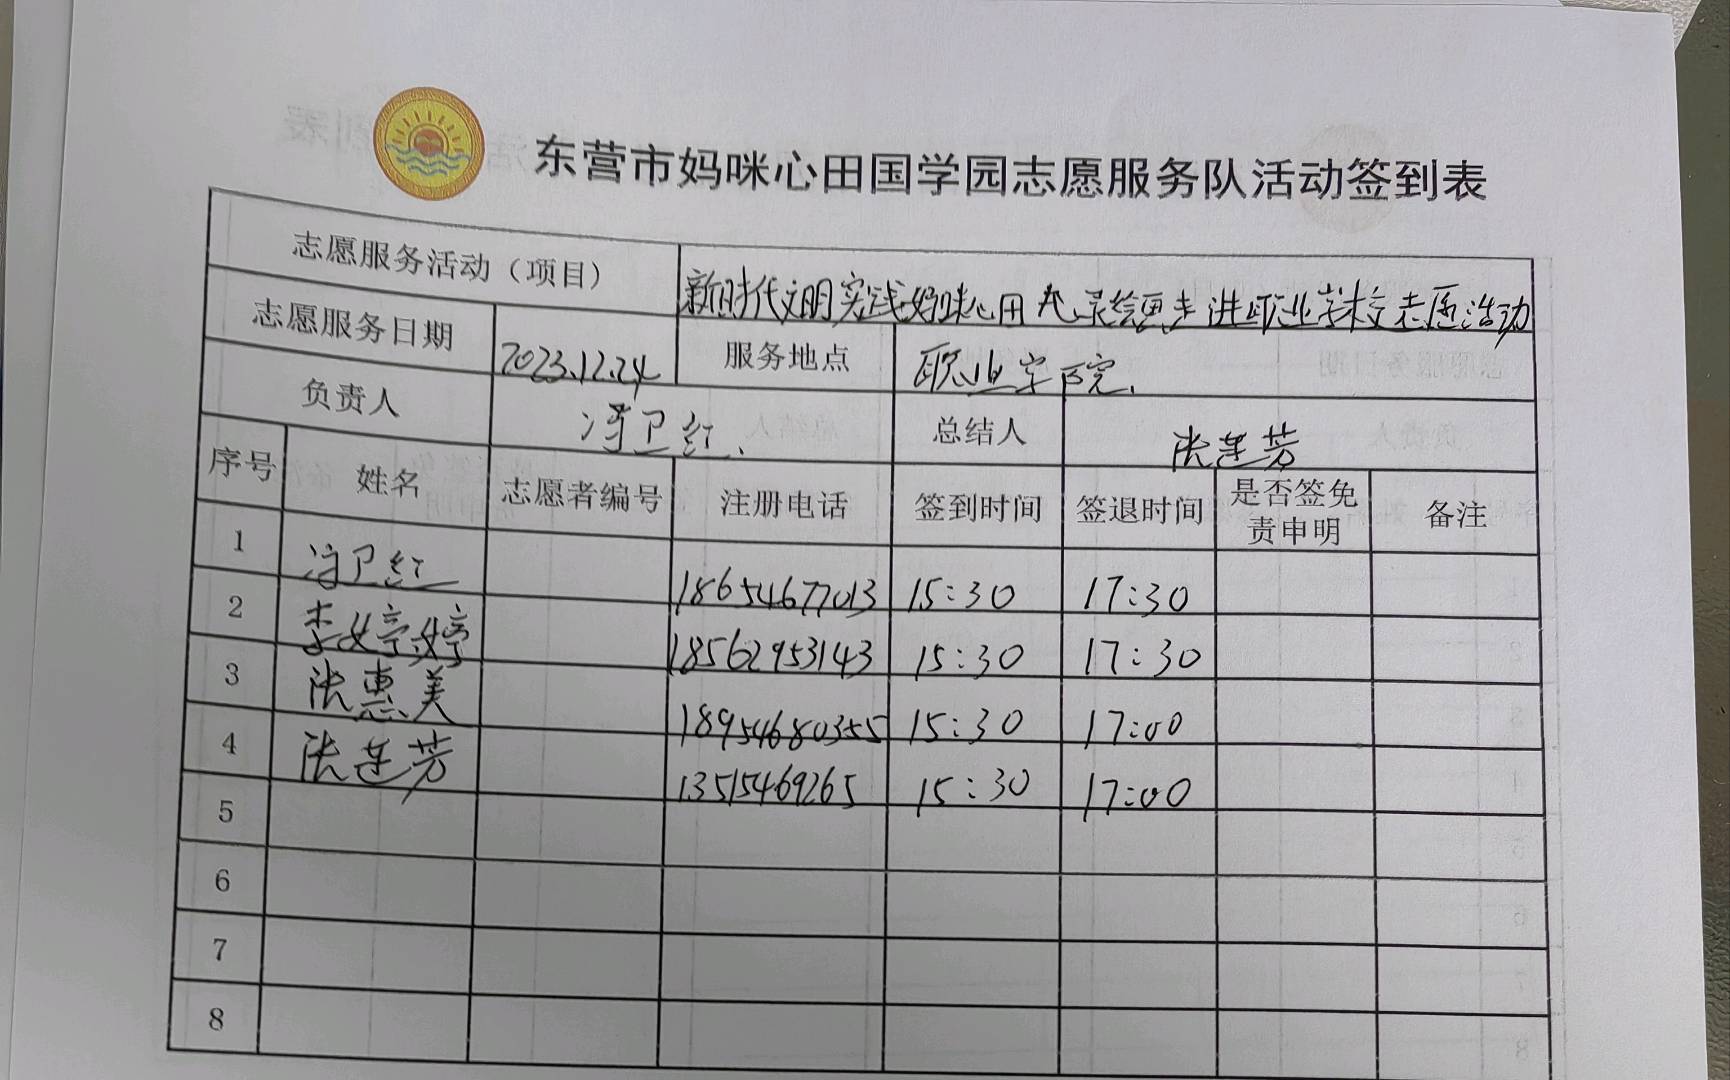 东营市妈咪心田国学园志愿服务队活动签到表
志愿服务活动（项目） 新时代文明实践妈咪心田心灵绘画走进职业学校志愿活动
志愿服务日期 2023.12.24 服务地点 职业学院.
负责人 冯卫红. 总结人 张莲芳
序号 姓名 志愿者编号 注册电话 签到时间 签退时间 是否签免责申明 备注
1 冯卫红 18654677013 15:30 17:30
2 李婷婷 18562953143 15:30 17:30
3 张惠美 18954680355 15:30 17:00
4 张莲芳 13515469265 15:30 17:00
5
6
7
8